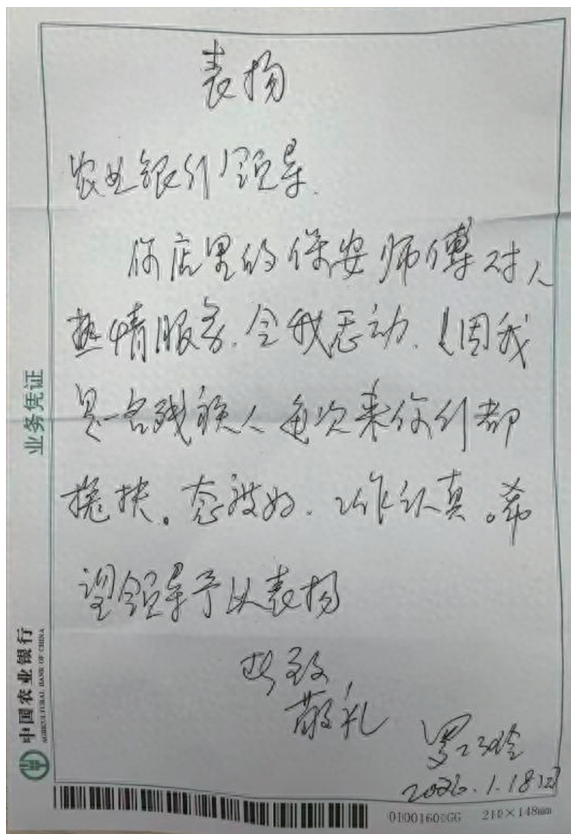 表扬
农业银行领导.
你店里的保安师傅对人
热情服务.令我感动.因我
是一名残疾人每次来你行都
搀扶。态度好.工作认真。希
望领导予以表扬
此致
敬礼
2026.1.18日
业务凭证
中国农业银行
AGRICULTURAL BANK OF CHINA
210×148mm